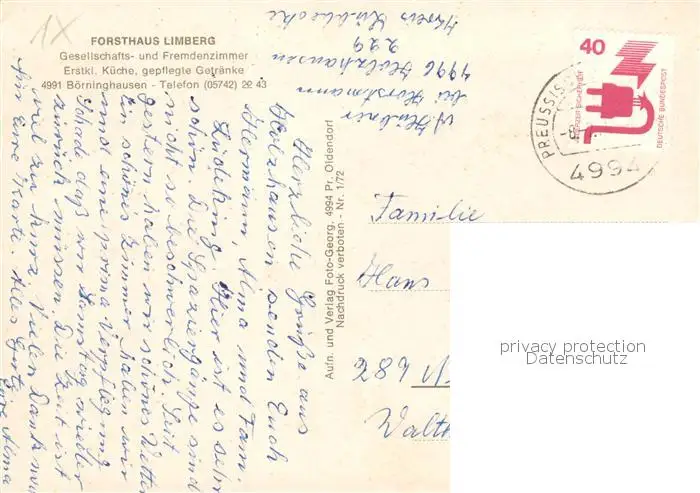 1X
FORSTHAUS LIMBERG
Gesellschafts- und Fremdenzimmer
Erstkl. Küche, gepflegte Getränke
4991 Börninghausen - Telefon (05742) 22 43
Herzliche Grüße aus
Holzhausen senden Euch
Hermann, Alma und Fam.
Hier ist es sehr
schön. Die Spaziergänge sind
nicht so beschwerlich. Seit
gestern haben wir schönes Wetter
Ein schönes Zimmer haben wir
und eine prima Verpflegung
Schade daß wir Samstag wieder
zurück müssen. Die Zeit ist
viel zu kurz. Vielen Dank nur
für Eure Karte. Alles Gute
Eure Alma
Aufn. und Verlag Foto-Georg, 4994 Pr. Oldendorf
Nachdruck verboten - Nr. 1/72
bei Horstmann
4996 Holzhausen
229
Kreis Lübbecke
40
JEDERZEIT SICHERHEIT
DEUTSCHE BUNDESPOST
PREUSSISCH
4994
Familie
Hans
privacy protection
Datenschutz